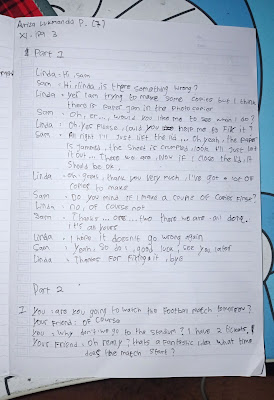 Ariza Lukmanda P. (7)
XI. IPA 3
Part 1
Linda : Hi, Sam
Sam : Hi, linda, is there something wrong?
Linda : Yes, I am trying to make some copies but I think
there is paper jam in the photocopier
Sam : Oh, er..., would you like me to see what I do?
Linda : Oh yes please, could you help me to fix it?
Sam : All right I'll just lift the lid ... Oh yeah, the paper
is jammed, the sheet is crumpled, look I'll just pull
it out ... There we are, now if I close the lid, it
should be ok.
Linda : oh great, thank you very much, I've got a lot of
copies to make
Sam : Do you mind if I make a couple of copies first?
Linda : No, of course not
Sam : Thanks ... one ... two there we are all done,
it's all yours
Linda : I hope it doesn't go wrong again
Sam : Yeah, so do i, good luck, see you later
Linda : Thanks for fixing it, bye
Part 2
1 You : are you going to watch the football match tomorrow?
Your friend : of course
You : Why don't we go to the stadium? I have 2 tickets.
Your friend : Oh really? thats a fantastic idea what time
does the match start?